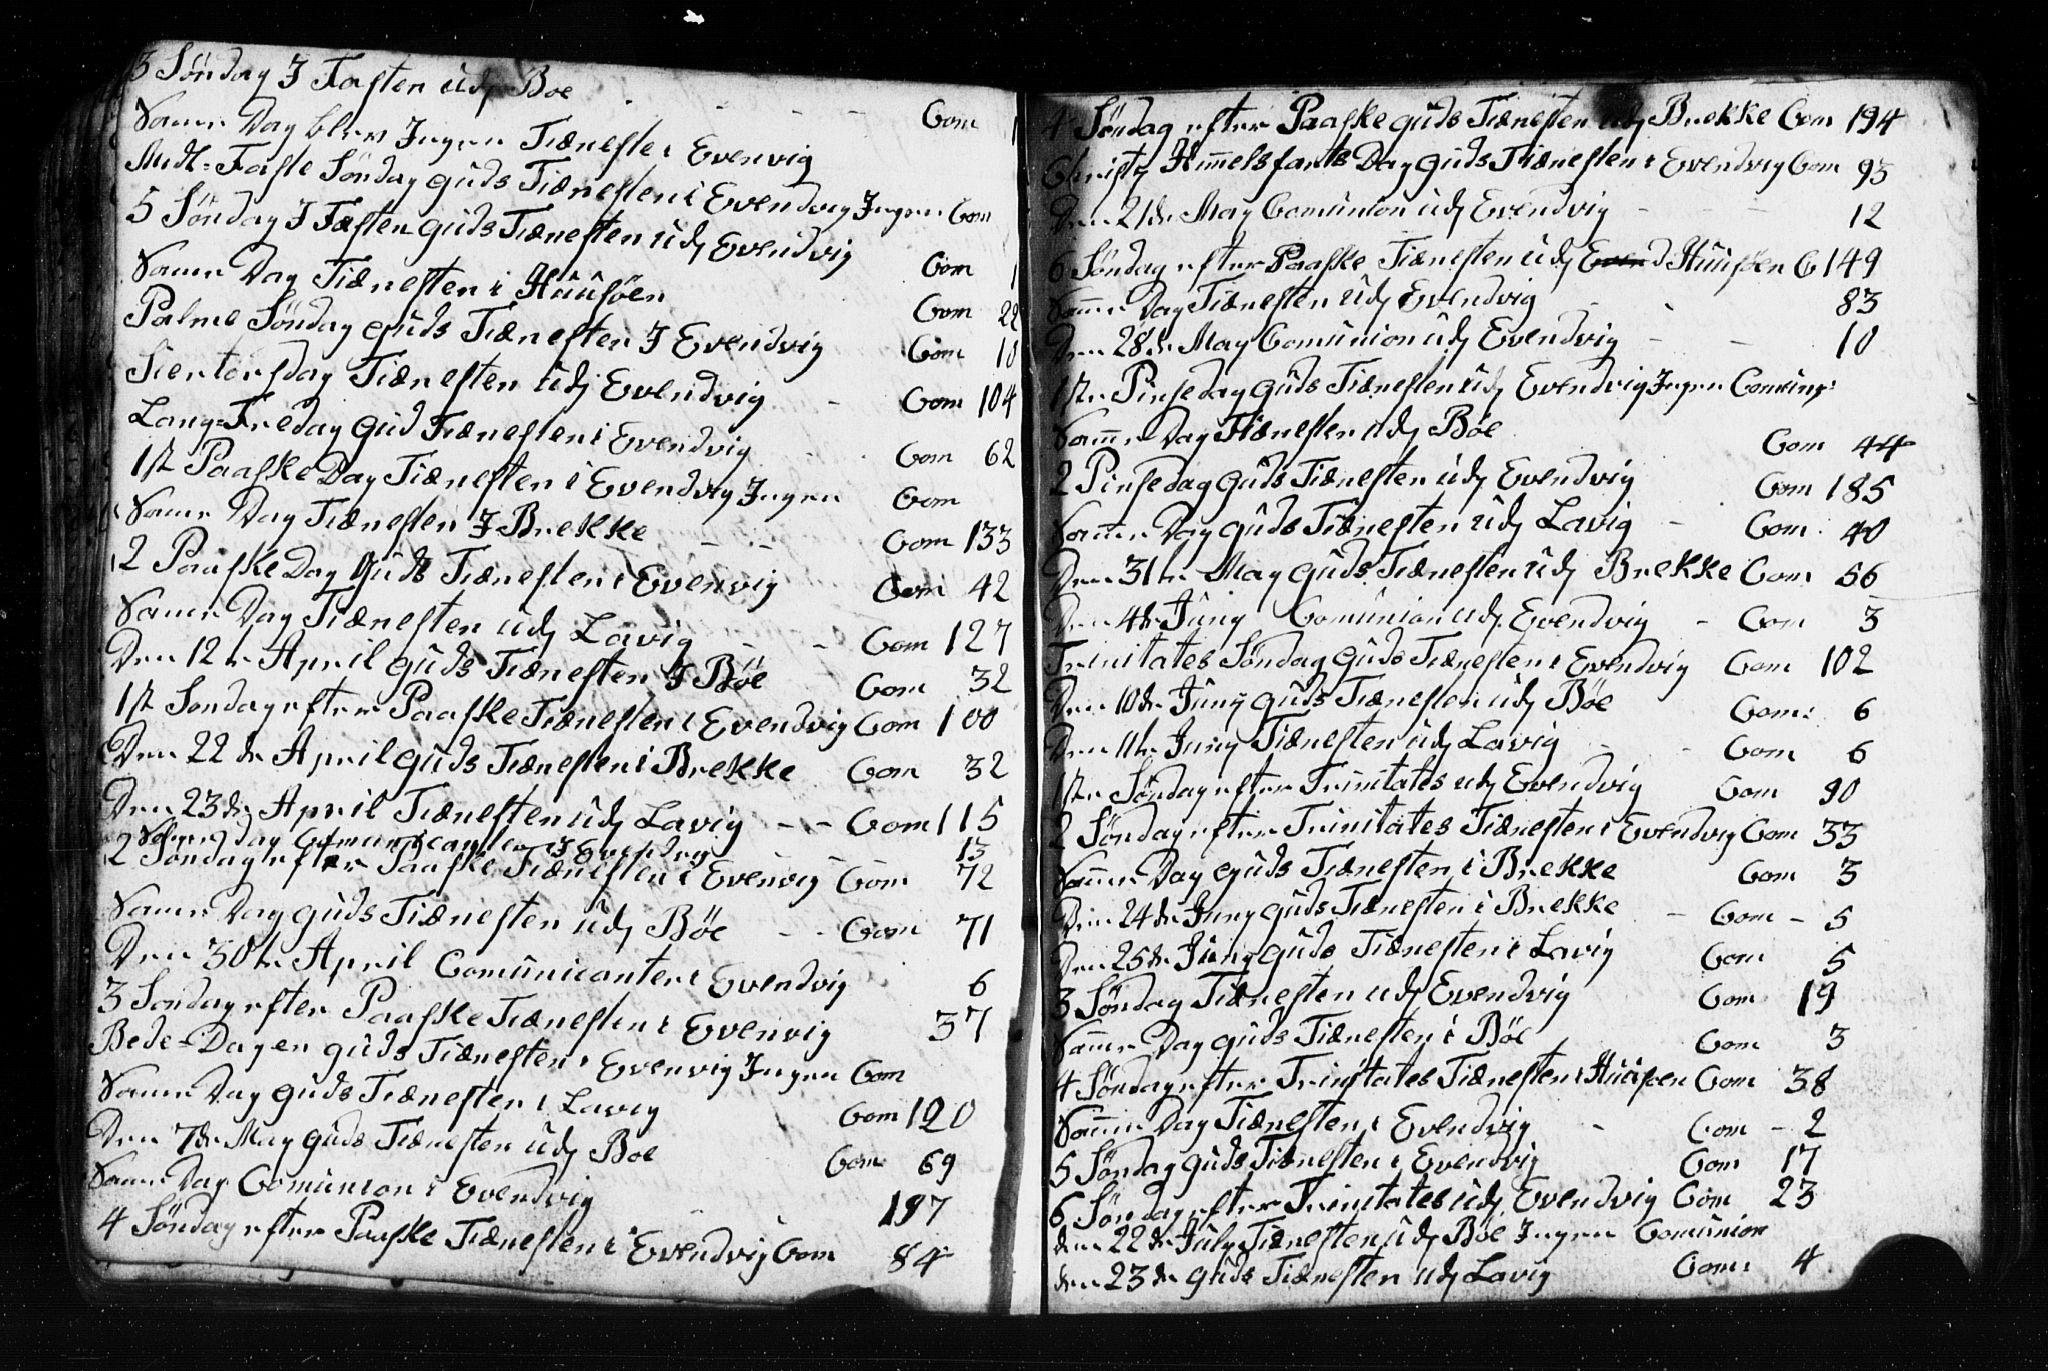 3 Søndag J Fasten udj Boe
Com 1
Same Dag blev Jngen Tiæneste i Evenvig
Midt-Faste Søndag Guds Tiænesten i Evendvig Jngen Com
5 Søndag J Fasten Guds Tiænesten udj Evendvig Com 1
Same Dag Tiænesten i Huusøen Com 22
Palme Søndag Guds Tiænesten J Evendvig Com 10
Siertorsdag Tiænesten udj Evendvig - Com 104
Lang-Fredag Gud Tiænesten i Evendvig Com 62
1st Paaske Dag Tiænesten i Evendvig Jngen Com
Same Dag Tiænesten J Brekke - - Com 133
2 Paaske Dag Guds Tiænesten i Evenvig Com 42
Same Dag Tiænesten udj Lavig - - Com 127
Den 12te April Guds Tiænesten J Bøe Com 32
1st Søndag efter Paaske Tiænesten i Evendvig Com 100
Den 22de April Guds Tiænesten i Brekke Com 32
Den 23de April Tiænesten udj Lavig - - Com 115
Same dag Comunicanter J Evendvig - - - 13
2 Søndag efter Paaske Tiænesten i Evenvig Com 72
Same Dag Guds Tiænesten udj Bøe - - Com 71
Den 30te April Comunicanter i Evendvig 6
3 Søndag efter Paaske Tiænesten i Evenvig 37
Bede-Dagen Guds Tiænesten i Evenvig Jngen Com
Same Dag Guds Tiænesten i Lavig Com 120
Den 7de May Guds Tiænesten udj Boe Com 69
Same Dag Comunion i Evendvig - - 197
4 Søndag efter Paaske Tiænesten i Evendvig Com 84
4 Søndag efter Paaske Guds Tiænesten udj Brekke Com 194
Christj Himmelsfarts Dag Guds Tiænesten i Evendvig Com 93
Den 21de May Comunion udj Evendvig - - - 12
6 Søndag efter Paaske Tiænesten udj Evend Huusøen C 149
Same Dag Tiænesten udj Evendvig - - 83
Den 28de May Comunion udj Evendvig - - 10
1ste Pinsedag Guds Tiænesten udj Evendvig Jngen Comun:
Same Dag Tiænesten udj Bøe Com 44
2 Pinsedag Guds Tiænesten udj Evendvig Com 185
Same Dag Guds Tiænesten udj Lavig - Com 40
Den 31te May Guds Tiænesten udj Brekke Com 56
Den 4de Junij Comunion udj Evendvig - Com 3
Trinitates Søndag Guds Tiænesten i Evendvig Com 102
Den 10de Junij Guds Tiænesten udj Bøe Com: 6
Den 11te Junij Tiænesten udj Lavig - - Com 6
1ste Søndag efter Trinitates udj Evendvig Com 90
2 Søndag efter Trinitates Tiænesten i Evendvig Com 33
Same Dag Guds Tiænesten i Brekke Com 3
Den 24de Junij Guds Tiænesten i Brekke - Com - 5
Den 25de Junij Guds Tiænesten i Lavig Com 5
3 Søndag Tiænesten udj Evendvig Com 19
Same Dag Guds Tiænesten i Bøe Com 3
4 Søndag efter Trinitates Tiænesten i Huusøen Com 38
Same Dag Tiænesten i Evendvig - Com - 2
5 Søndag Guds Tiænesten i Evendvig Com 17
6 Søndag efter Trinitates udj Evendvig Com 23
den 22de July Tiænesten udj Bøe Jngen Comunion
den 23de Guds Tiænesten udj Lavig Com: 4